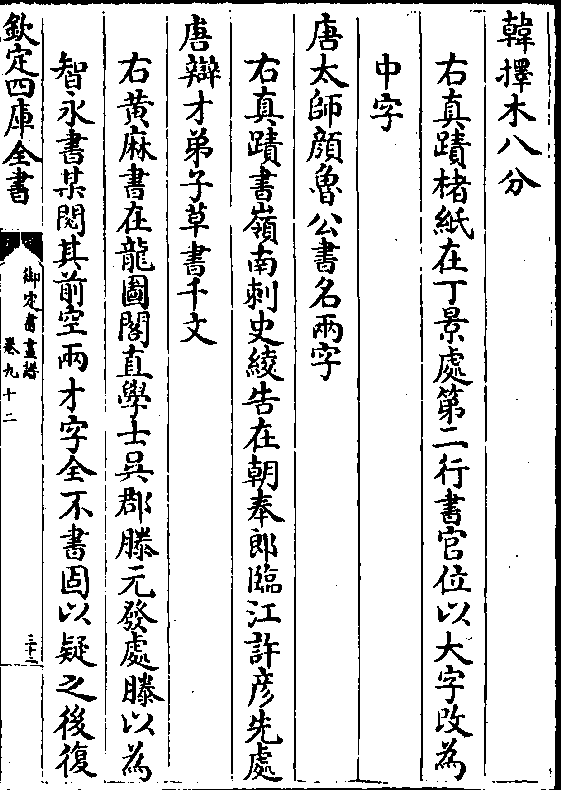 韓擇木八分
右真蹟楮紙在丁景處第二行書官位以大字改為
中字
唐太師顔魯公書名兩字
右真蹟書嶺南刺史綾告在朝奉郎臨江許彦先處
唐辯才弟子草書千文
右黄麻書在龍圖閣直學士吳郡滕元發處滕以為
智永書某閲其前空兩才字全不書固以疑之後復
欽定四庫全書
御定書畫譜
卷九十二
三十二